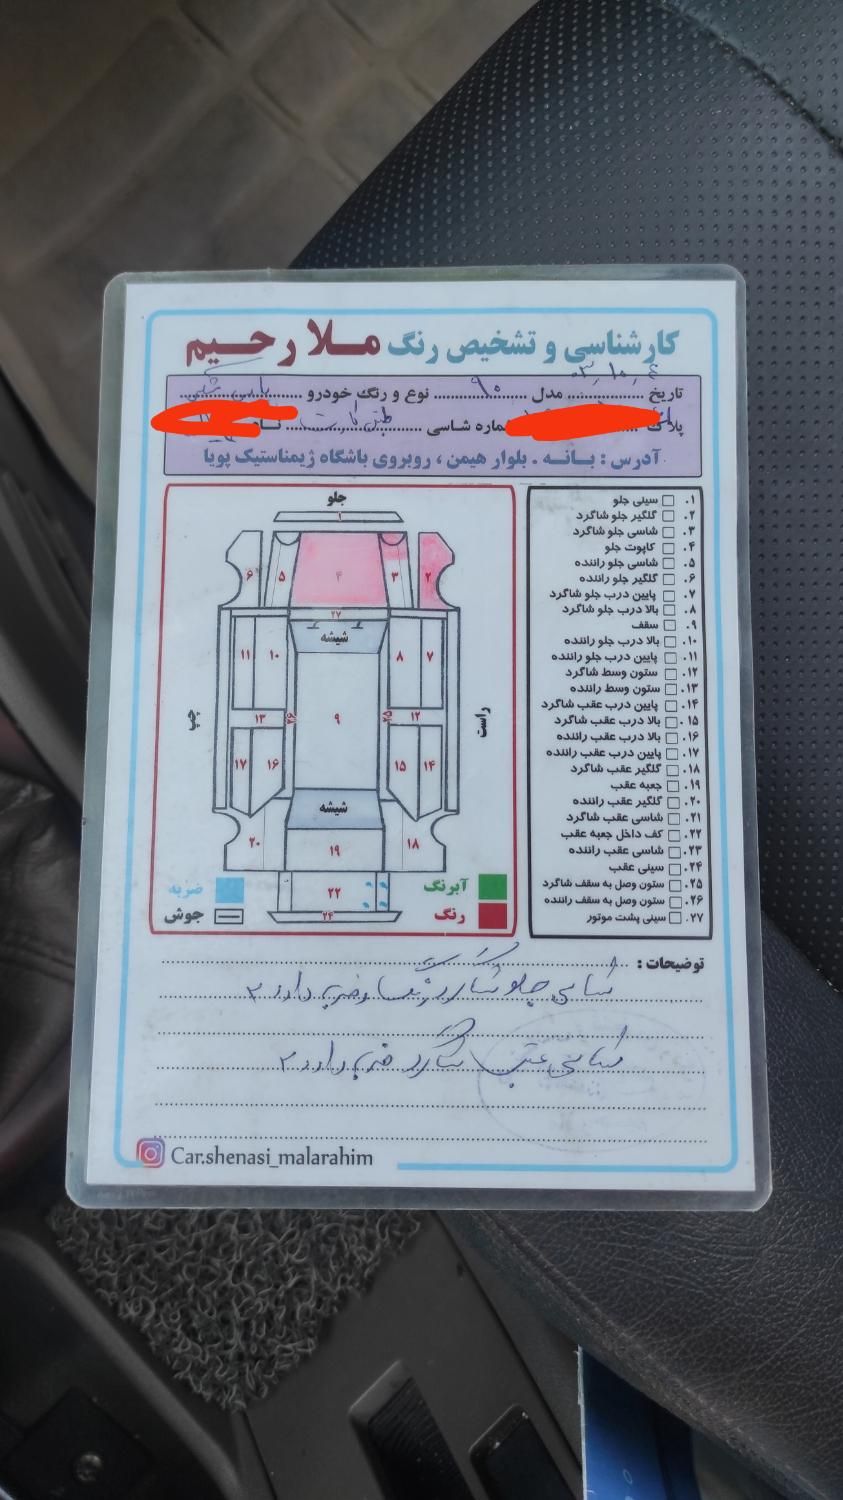 کارشناسی و تشخیص رنگ ملا رحیم
تاریخ ۰۳,۱۰,۰۶ مدل ۹۰ نوع و رنگ خودرو پارس مشکی
پلاک شماره شاسی طبق کارت
آدرس : بانه . بلوار هیمن ، روبروی باشگاه ژیمناستیک پویا
جلو
۱
۶ ۵ ۴ ۳ ۲
۲۷
شیشه
۱۱ ۱۰ ۸ ۷
چپ
۱۳ ۲۶ ۹ ۲۵ ۱۲
راست
۱۷ ۱۶ ۱۵ ۱۴
شیشه
۲۰ ۱۹ ۱۸
۲۲
۲۴
ضربه
آبرنگ
جوش
رنگ
۱. سینی جلو
۲. گلگیر جلو شاگرد
۳. شاسی جلو شاگرد
۴. کاپوت جلو
۵. شاسی جلو راننده
۶. گلگیر جلو راننده
۷. پایین درب جلو شاگرد
۸. بالا درب جلو شاگرد
۹. سقف
۱۰. بالا درب جلو راننده
۱۱. پایین درب جلو راننده
۱۲. ستون وسط شاگرد
۱۳. ستون وسط راننده
۱۴. پایین درب عقب شاگرد
۱۵. بالا درب عقب شاگرد
۱۶. بالا درب عقب راننده
۱۷. پایین درب عقب راننده
۱۸. گلگیر عقب شاگرد
۱۹. جعبه عقب
۲۰. گلگیر عقب راننده
۲۱. شاسی عقب شاگرد
۲۲. کف داخل جعبه عقب
۲۳. شاسی عقب راننده
۲۴. سینی عقب
۲۵. ستون وصل به سقف شاگرد
۲۶. ستون وصل به سقف راننده
۲۷. سینی پشت موتور
توضیحات :
شاسی جلو شاگرد رنگ و ضربه دارد
شاسی عقب شاگرد ضربه دارد
Car.shenasi_malarahim